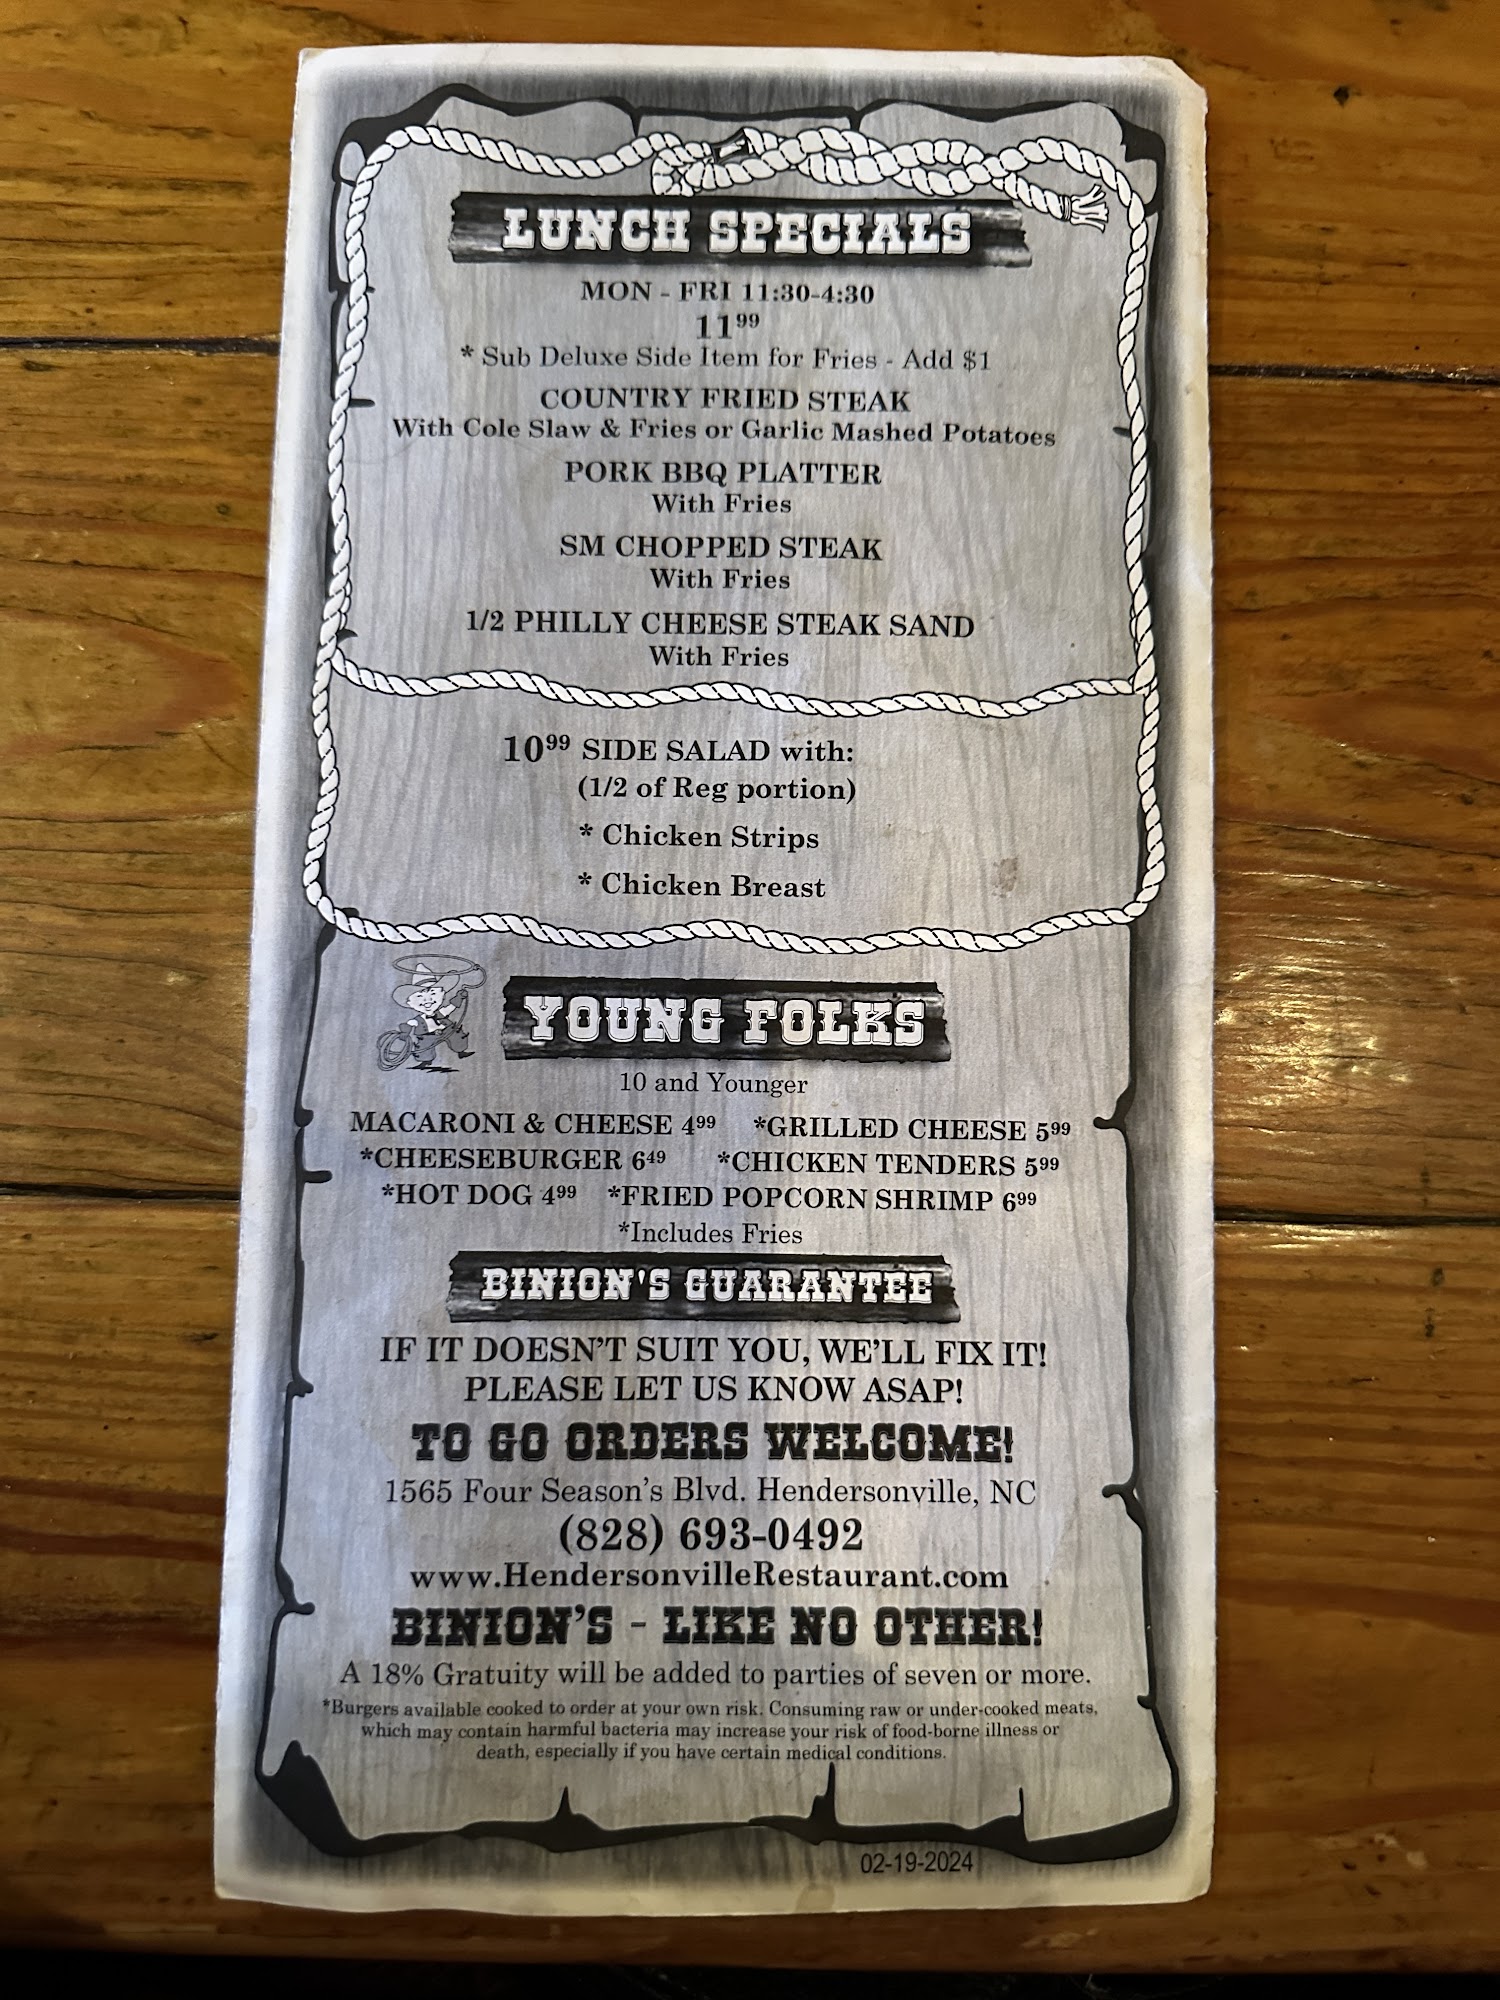 LUNCH SPECIALS
MON - FRI 11:30-4:30
11⁹⁹
* Sub Deluxe Side Item for Fries - Add $1
COUNTRY FRIED STEAK
With Cole Slaw & Fries or Garlic Mashed Potatoes
PORK BBQ PLATTER
With Fries
SM CHOPPED STEAK
With Fries
1/2 PHILLY CHEESE STEAK SAND
With Fries
10⁹⁹ SIDE SALAD with:
(1/2 of Reg portion)
* Chicken Strips
* Chicken Breast
YOUNG FOLKS
10 and Younger
MACARONI & CHEESE 4⁹⁹ *GRILLED CHEESE 5⁹⁹
*CHEESEBURGER 6⁴⁹ *CHICKEN TENDERS 5⁹⁹
*HOT DOG 4⁹⁹ *FRIED POPCORN SHRIMP 6⁹⁹
*Includes Fries
BINION'S GUARANTEE
IF IT DOESN'T SUIT YOU, WE'LL FIX IT!
PLEASE LET US KNOW ASAP!
TO GO ORDERS WELCOME!
1565 Four Season's Blvd. Hendersonville, NC
(828) 693-0492
www.HendersonvilleRestaurant.com
BINION'S - LIKE NO OTHER!
A 18% Gratuity will be added to parties of seven or more.
*Burgers available cooked to order at your own risk. Consuming raw or under-cooked meats,
which may contain harmful bacteria may increase your risk of food-borne illness or
death, especially if you have certain medical conditions.
02-19-2024